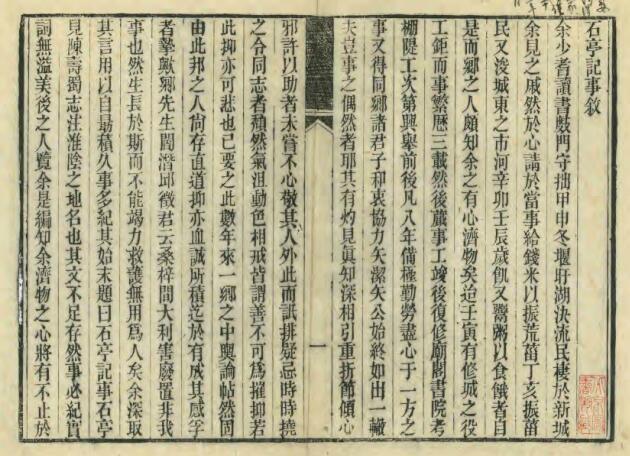 石亭記事敘
余少耆讀書敼門守拙甲申冬堰盱湖決流民棲於新城
余見之戚然於心請於當事給錢米以振荒菑丁亥振菑
民又浚城東之市河辛卯壬辰歲飢又鬻粥以食餓者自
是而鄉之人頗知余之有心濟物矣迨壬寅有修城之役
工鉅而事繁歷三載然後蕆事工竣後復修廟閣書院考
棚隄工次第興舉前後凡八年備極勤勞盡心于一方之
事又得同鄉諸君子和衷協力矢潔矢公始終如出一轍
夫豈事之偶然者耶其有灼見眞知深相引重折節傾心
一
邪許以助者未嘗不心敬其人外此而詆排疑忌時時撓
之令同志者頹然氣沮動色相戒皆謂善不可爲摧抑若
此抑亦可悲也已要之此數年來一鄉之中輿論帖然固
由此邦之人尙存直道抑亦血誠所積迄於有成其感孚
者摯歟鄉先生閻潛邱徵君云桑梓間大利害廢置非我
事也然生長於斯而不能竭力救護無用爲人矣余深取
其言用以自勗積久事多紀其始末題曰石亭記事石亭
見陳壽蜀志注淮陰之地名也其文不足存然事必紀實
詞無溢美後之人覽余是編知余濟物之心將有不止於